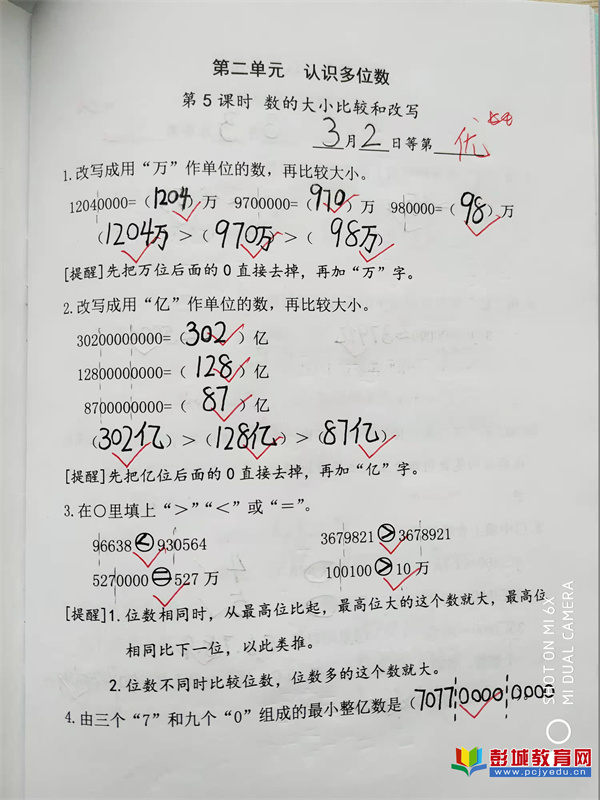 第二单元 认识多位数
第5课时 数的大小比较和改写
3月2日等第 优
1.改写成用“万”作单位的数，再比较大小。
12040000=（1204）万 9700000=（970）万 980000=（98）万
（1204万）＞（970万）＞（98万）
[提醒]先把万位后面的0直接去掉，再加“万”字。
2.改写成用“亿”作单位的数，再比较大小。
30200000000=（302）亿
12800000000=（128）亿
8700000000=（87）亿
（302亿）＞（128亿）＞（87亿）
[提醒]先把亿位后面的0直接去掉，再加“亿”字。
3.在○里填上“＞”“＜”或“＝”。
96638＜930564 3679821＞3678921
5270000＝527万 100100＞10万
[提醒]1.位数相同时，从最高位比起，最高位大的这个数就大，最高位
相同比下一位，以此类推。
2.位数不同时比较位数，位数多的这个数就大。
4.由三个“7”和九个“0”组成的最小整亿数是（707700000000）。
SHOT ON MI 6X
MI DUAL CAMERA
彭城教育网
www.pcjyedu.cn